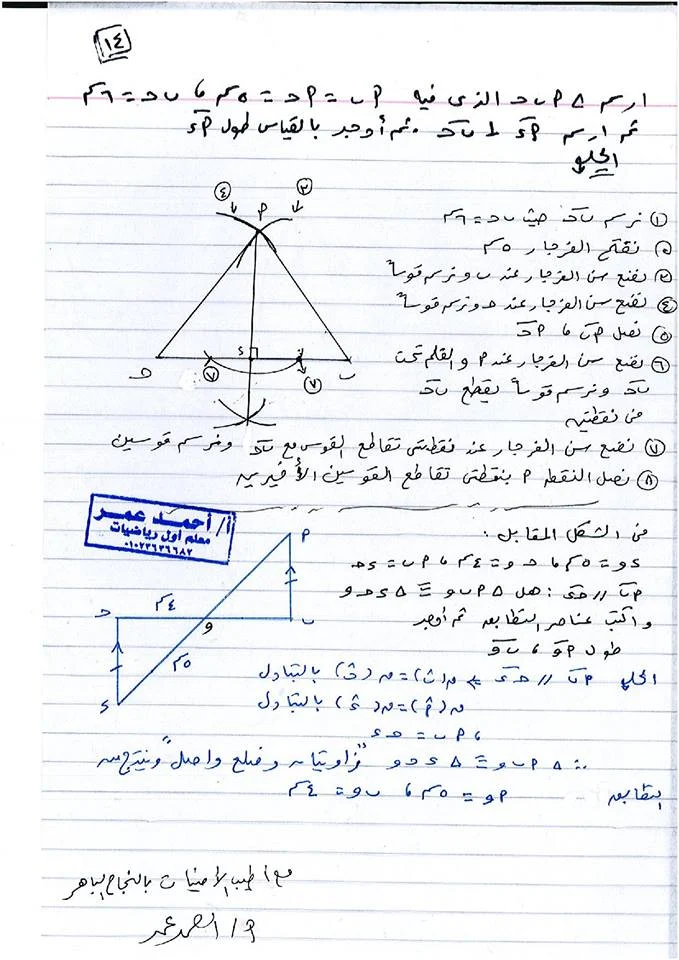 ١٤
ارسم △ ٢ ب حـ الذى فيه ٢ ب = ٢ حـ = ٥ سم ، ب حـ = ٦ سم
ثم ارسم ٢ء ⊥ ب حـ . ثم أوجد بالقياس طول ٢ء
الحل
٤ ٢ ٣
① نرسم ب حـ حيث ب حـ = ٦ سم
② نفتح الفرجار ٥ سم
③ نضع سن الفرجار عند ب ونرسم قوساً
④ نضع سن الفرجار عند حـ ونرسم قوساً
⑤ نصل ٢ ب ، ٢ حـ
⑥ نضع سن الفرجار عند ٢ والقلم تحت
ب حـ ونرسم قوساً يقطع ب حـ
فى نقطتين
حـ ٧ ء ٧ ب
⑦ نضع سن الفرجار عند نقطتى تقاطع القوس مع ب حـ ونرسم قوسين
⑧ نصل النقطة ٢ بنقطتى تقاطع القوسين الأخيرين
أ/ أحمد عمر
معلم أول رياضيات
٠١٠٢٣٦٣٦٦٨٢
فى الشكل المقابل :
ء و = ٥ سم ، حـ و = ٤ سم ، ٢ ب = ء حـ
٢ ب // حـ ء : هل △ ٢ ب و ≡ △ ء حـ و
واكتب عناصر التطابق ثم أوجد
طول ٢ و ، ب و
٢
حـ ٤ سم و ب
٥ سم
ء
الحل ٢ ب // حـ ء ⇐ ق(ب) = ق(حـ) بالتبادل
ق(٢) = ق(ء) بالتبادل
، ٢ ب = حـ ء
∴ △ ٢ ب و ≡ △ ء حـ و "زاويتان وضلع واصل" وينتج من
التطابق ٢ و = ٥ سم ، ب و = ٤ سم
مع أطيب الأمنيات بالنجاح الباهر
أ/ أحمد عمر